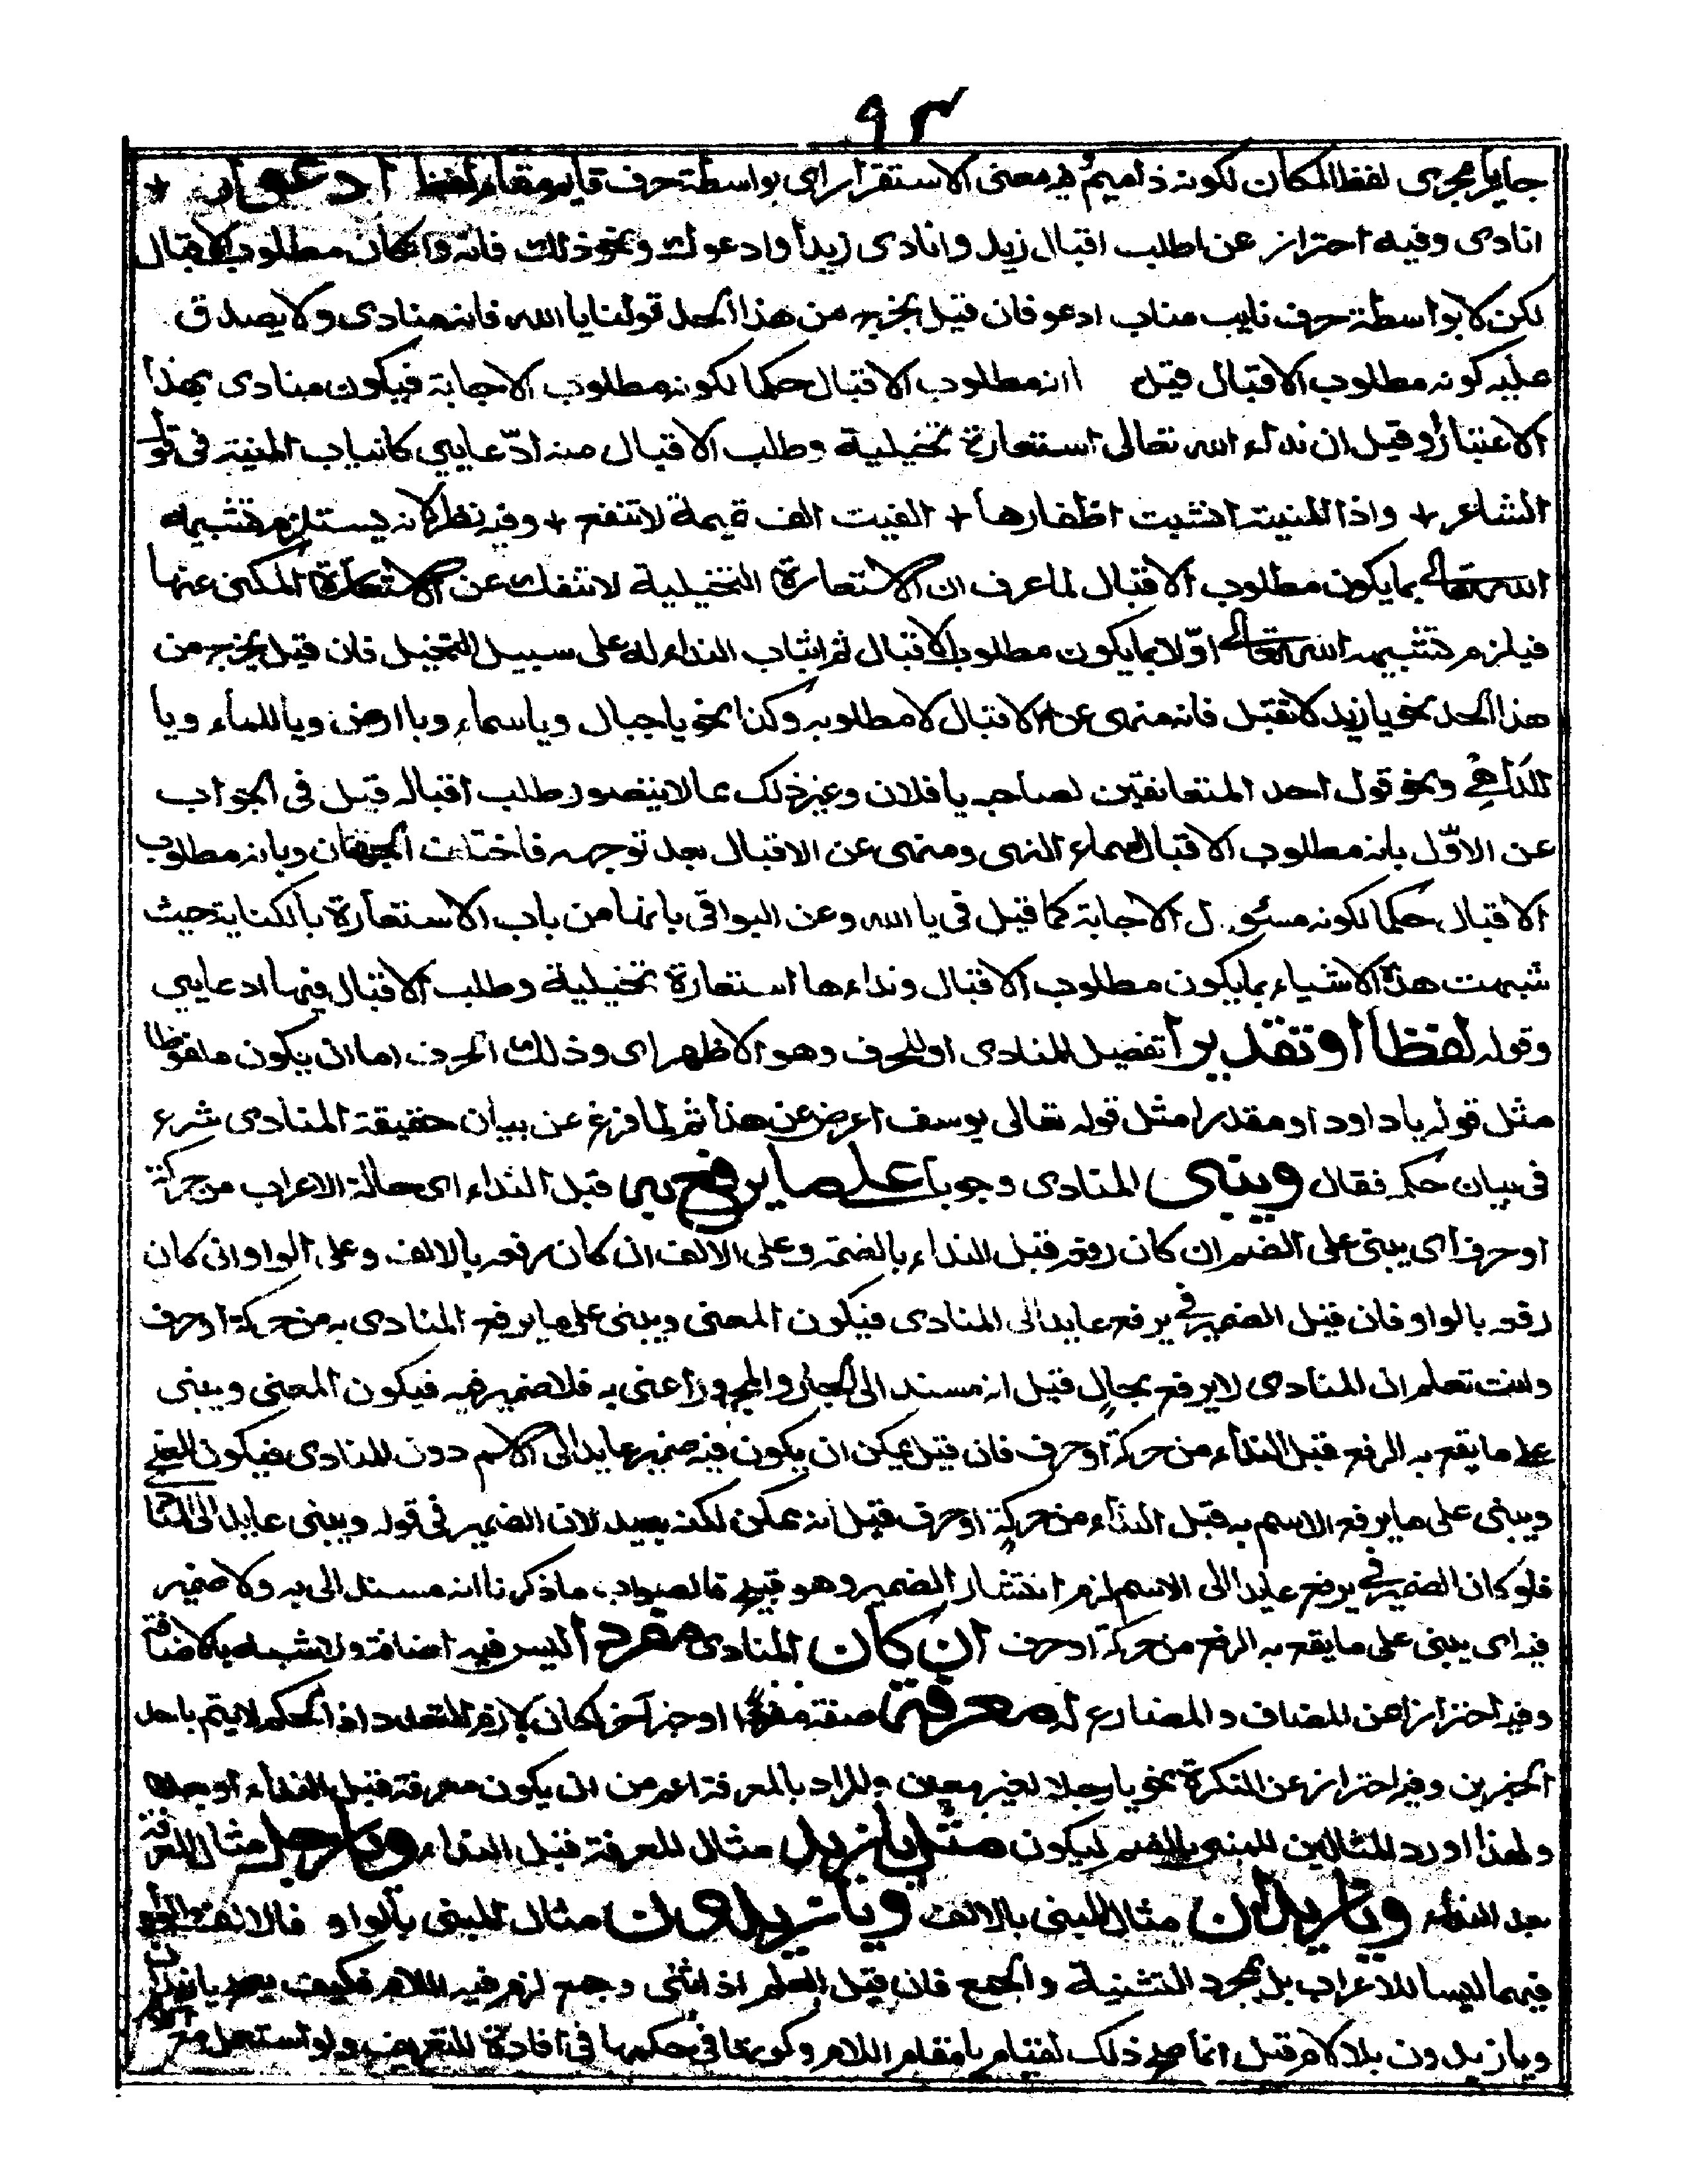 ٩٣
جاريا مجرى لفظ المكان لكونه ذا ميم فى معنى الاستقرار اى بواسطة حرف قايم مقام لفظ ادعو او
انادى وفيه احتراز عن اطلب اقبال زيد وانادى زيدا وادعوك ونحو ذلك فانه وان كان مطلوب الاقبال
لكن لا بواسطة حرف نايب مناب ادعو فان قيل يخرج من هذا الحد قولنا يا الله فانه منادى ولا يصدق
عليه كونه مطلوب الاقبال قيل انه مطلوب الاقبال حكما لكونه مطلوب الاجابة فيكون منادى بهذا
الاعتبار وقيل ان نداء الله تعالى استعارة تخييلية وطلب الاقبال منه ادّعايى كانياب المنية فى قول
الشاعر + واذا المنية انشبت اظفارها + الفيت الف تميمة لا تنفع + وفيه نظر لانه يستلزم تشبيه
الله تعالى بما يكون مطلوب الاقبال لما عرف ان الاستعارة التخييلية لا تنفك عن الاستعارة المكنى عنها
فيلزم تشبيه الله تعالى اوّلا بما يكون مطلوب الاقبال ثم اثبات النداء له على سبيل التخييل فان قيل يخرج من
هذا الحد نحو يا زيد لا تقبل فانه منهى عن الاقبال لا مطلوبه وكذا نحو يا جبال ويا سماء ويا ارض ويا للماء ويا
للدواهى ونحو قول احد المتعانقين لصاحبه يا فلان وغير ذلك مما لا يتصور طلب اقباله قيل فى الجواب
عن الاوّل بانه مطلوب الاقبال لسماع النهى ومنهى عن الاقبال بعد توجهه فاختلفت الجهتان وبانه مطلوب
الاقبال حكما لكونه مسئول الاجابة كما قيل فى يا الله وعن البواقى بانها من باب الاستعارة بالكناية حيث
شبهت هذه الاشياء بما يكون مطلوب الاقبال ونداءها استعارة تخييلية وطلب الاقبال فيها ادعايى
وقوله لفظا او تقديرا تفصيل للمنادى او للحرف وهو الاظهر اى وذلك الحرف اما ان يكون ملفوظا
مثل قوله يا داود او مقدرا مثل قوله تعالى يوسف اعرض عن هذا ثم لما فرغ عن بيان حقيقة المنادى شرع
فى بيان حكمه فقال ويبنى المنادى وجوبا على ما يرفع به قبل النداء اى حالة الاعراب من حركة
او حرف اى يبنى على الضم ان كان رفعه قبل النداء بالضمة وعلى الالف ان كان رفعه بالالف وعلى الواو ان كان
رفعه بالواو فان قيل الضمير فى يرفع عايد الى المنادى فيكون المعنى ويبنى على ما يرفع المنادى به من حركة او حرف
وانت تعلم ان المنادى لا يرفع بحال قيل انه مسند الى الجار والمجرور اعنى به فلا ضمير فيه فيكون المعنى ويبنى
على ما يقع به الرفع قبل النداء من حركة او حرف فان قيل يمكن ان يكون فيه ضمير عايد الى الاسم دون المنادى فيكون المعنى
ويبنى على ما يرفع الاسم به قبل النداء من حركة او حرف قيل انه يمكن لكنه بعيد لان الضمير فى قوله ويبنى عايد الى المنادى
فلو كان الضمير فى يرفع عايدا الى الاسم لزم انتشار الضمير وهو قبيح فالصواب ما ذكرنا انه مسند الى به ولا ضمير
فيه اى يبنى على ما يقع به الرفع من حركة او حرف ان كان المنادى مفردا اليس فيه اضافة ولا شبه بالاضافة
وفيه احتراز عن المضاف والمضارع له معرفة صفة مفردا او خبر آخر لكان لازم للتعدد اذ الحكم لا يتم باحد
الخبرين وفيه احتراز عن النكرة نحو يا رجلا لغير معين والمراد بالمعرفة اعم من ان يكون معرفة قبل النداء او بعده
ولهذا اورد المثالين للمبنى بالضم ليكون مثل يا زيد مثال للمعرفة قبل النداء ويا رجل مثال للمعرفة
بعد النداء ويا زيدان مثال للمبنى بالالف ويا زيدون مثال للمبنى بالواو فالالف والواو
فيهما ليسا للاعراب بل لمجرد التثنية والجمع فان قيل العلم اذا ثنى وجمع لزم فيه اللام فكيف يصح يا زيدان
ويا زيدون بلا لام قيل انما صح ذلك لقيام يا مقام اللام وكونها فى حكمها فى افادة التعريف ولو استعمل مع